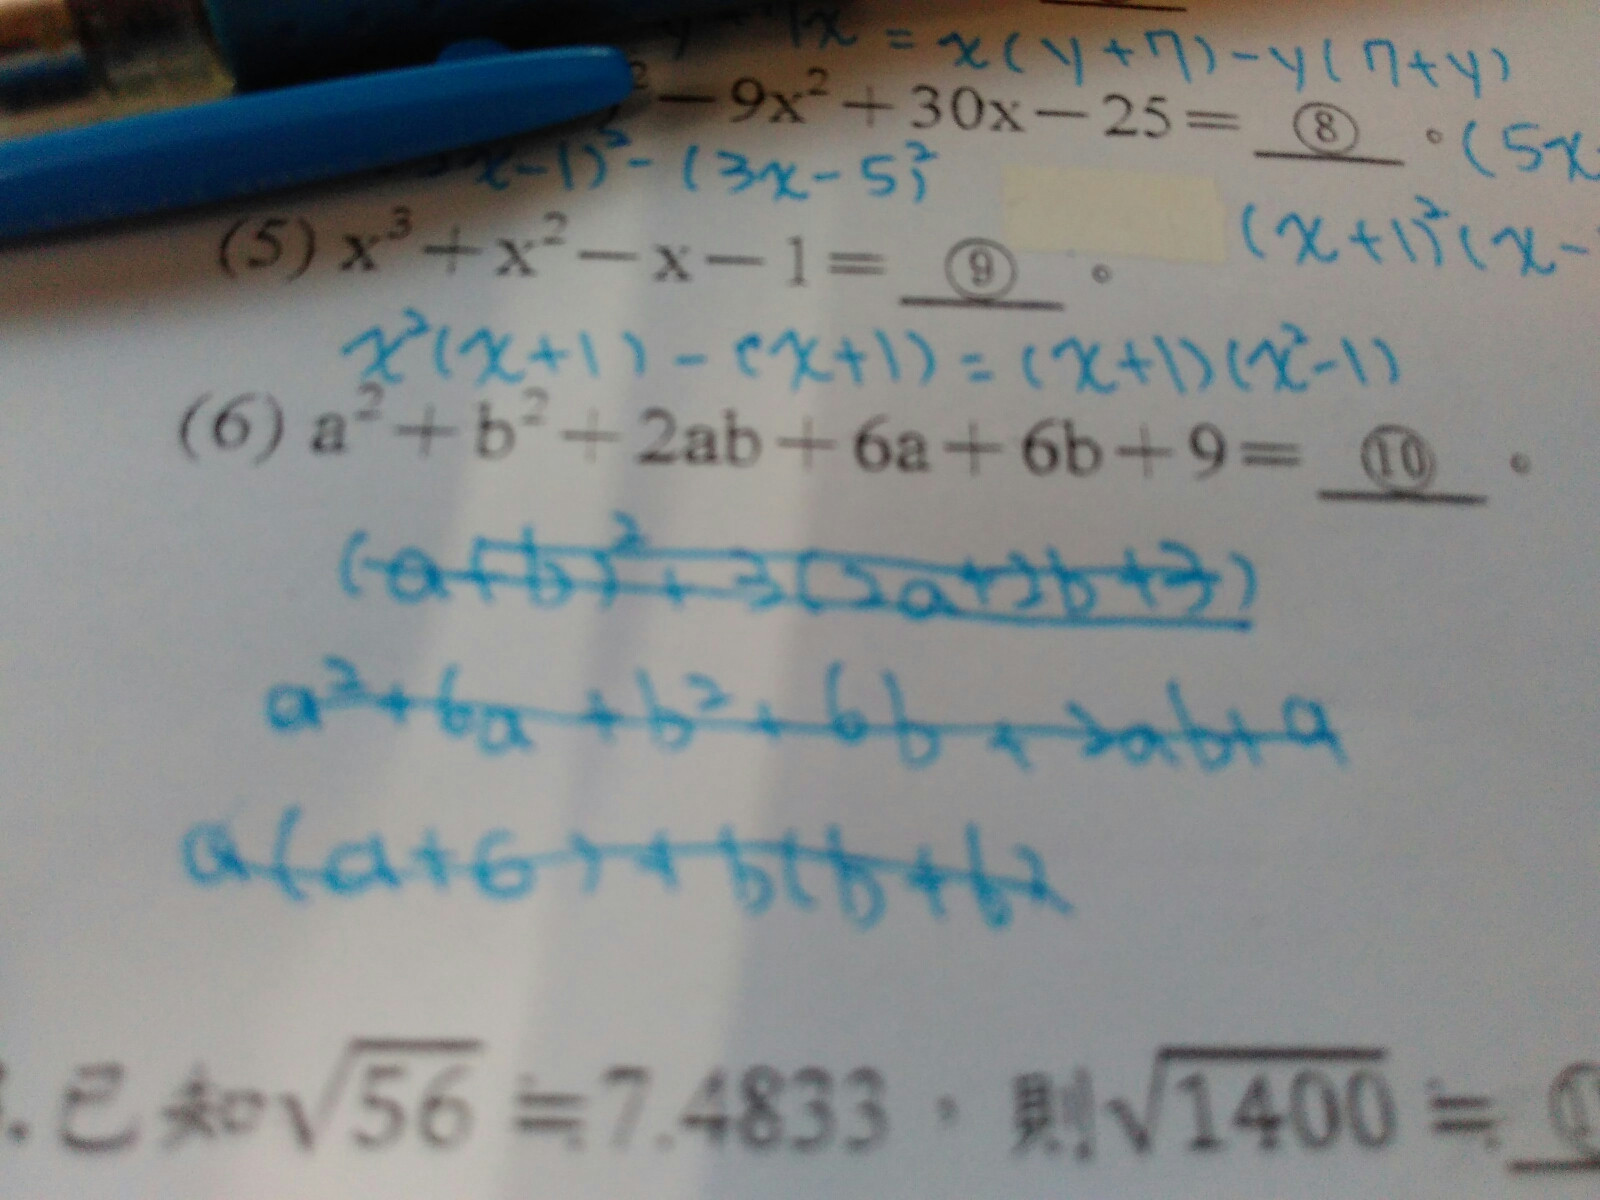 = x(y+7)-y(7+y)
² - 9x² + 30x - 25 = ⑧ 。 (5x
x-1)² - (3x-5)²
(x+1)²(x-
(5) x³ + x² - x - 1 = ⑨ 。
x²(x+1) - (x+1) = (x+1)(x²-1)
(6) a² + b² + 2ab + 6a + 6b + 9 = ⑩ 。
(a+b)² + 3(2a+2b+3)
a²+6a+b²+6b+2ab+9
a(a+6)+b(b+6)
. 已知√56 ≒ 7.4833,則√1400 ≒